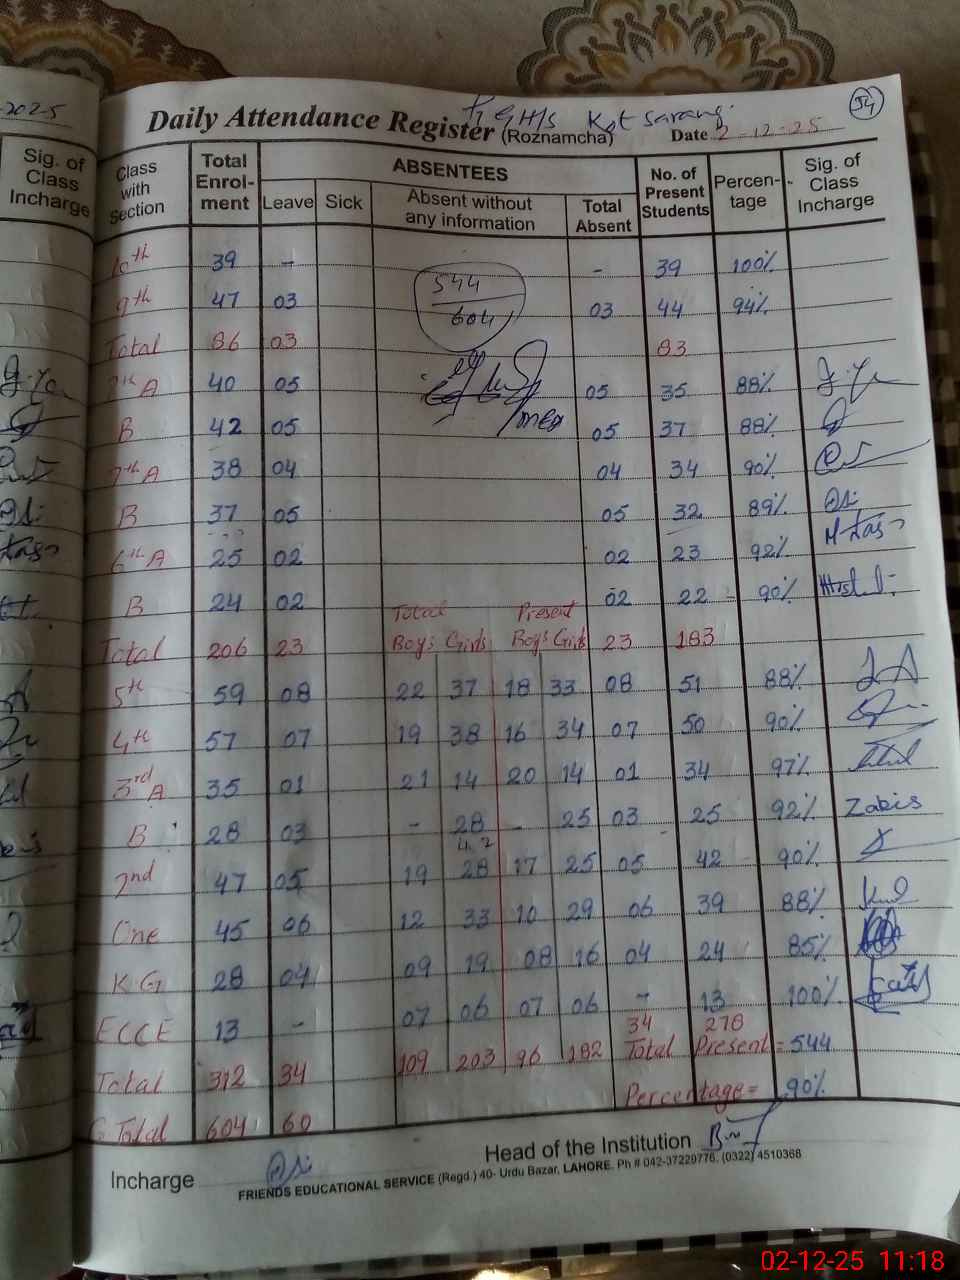 -2025
Sig. of
Class
Incharge
GHS Kot Sarang
54
Daily Attendance Register (Roznamcha) Date 2-12-25
Class with Section Total Enrol-ment ABSENTEES No. of Present Students Percen-tage Sig. of Class Incharge
Leave Sick Absent without any information Total Absent
10th 39 - - 39 100%
544
9th 47 03 03 44 94%
604
Total 86 03 83
A 40 05 05 35 88%
B 42 05 05 37 88%
7th A 38 04 04 34 90%
B 37 05 05 32 89%
6th A 25 02 02 23 92%
B 24 02 02 22 90%
Total Present
Total 206 23 Boys Girls Boys Girls 23 183
5th 59 08 22 37 18 33 08 51 88%
4th 57 07 19 38 16 34 07 50 90%
3rd A 35 01 21 14 20 14 01 34 97%
B 28 03 - 28 - 25 03 25 92% Zabis
2nd 47 05 19 28 17 25 05 42 90%
One 45 06 12 33 10 29 06 39 88%
KG 28 04 09 19 08 16 04 24 85%
ECCE 13 - 07 06 07 06 - 13 100%
34 278
Total 312 34 109 203 96 182 Total Present = 544
Percentage = 90%
G Total 604 60
Incharge Head of the Institution
FRIENDS EDUCATIONAL SERVICE (Regd.) 40- Urdu Bazar, LAHORE. Ph # 042-37220776, (0322) 4510368
02-12-25 11:18